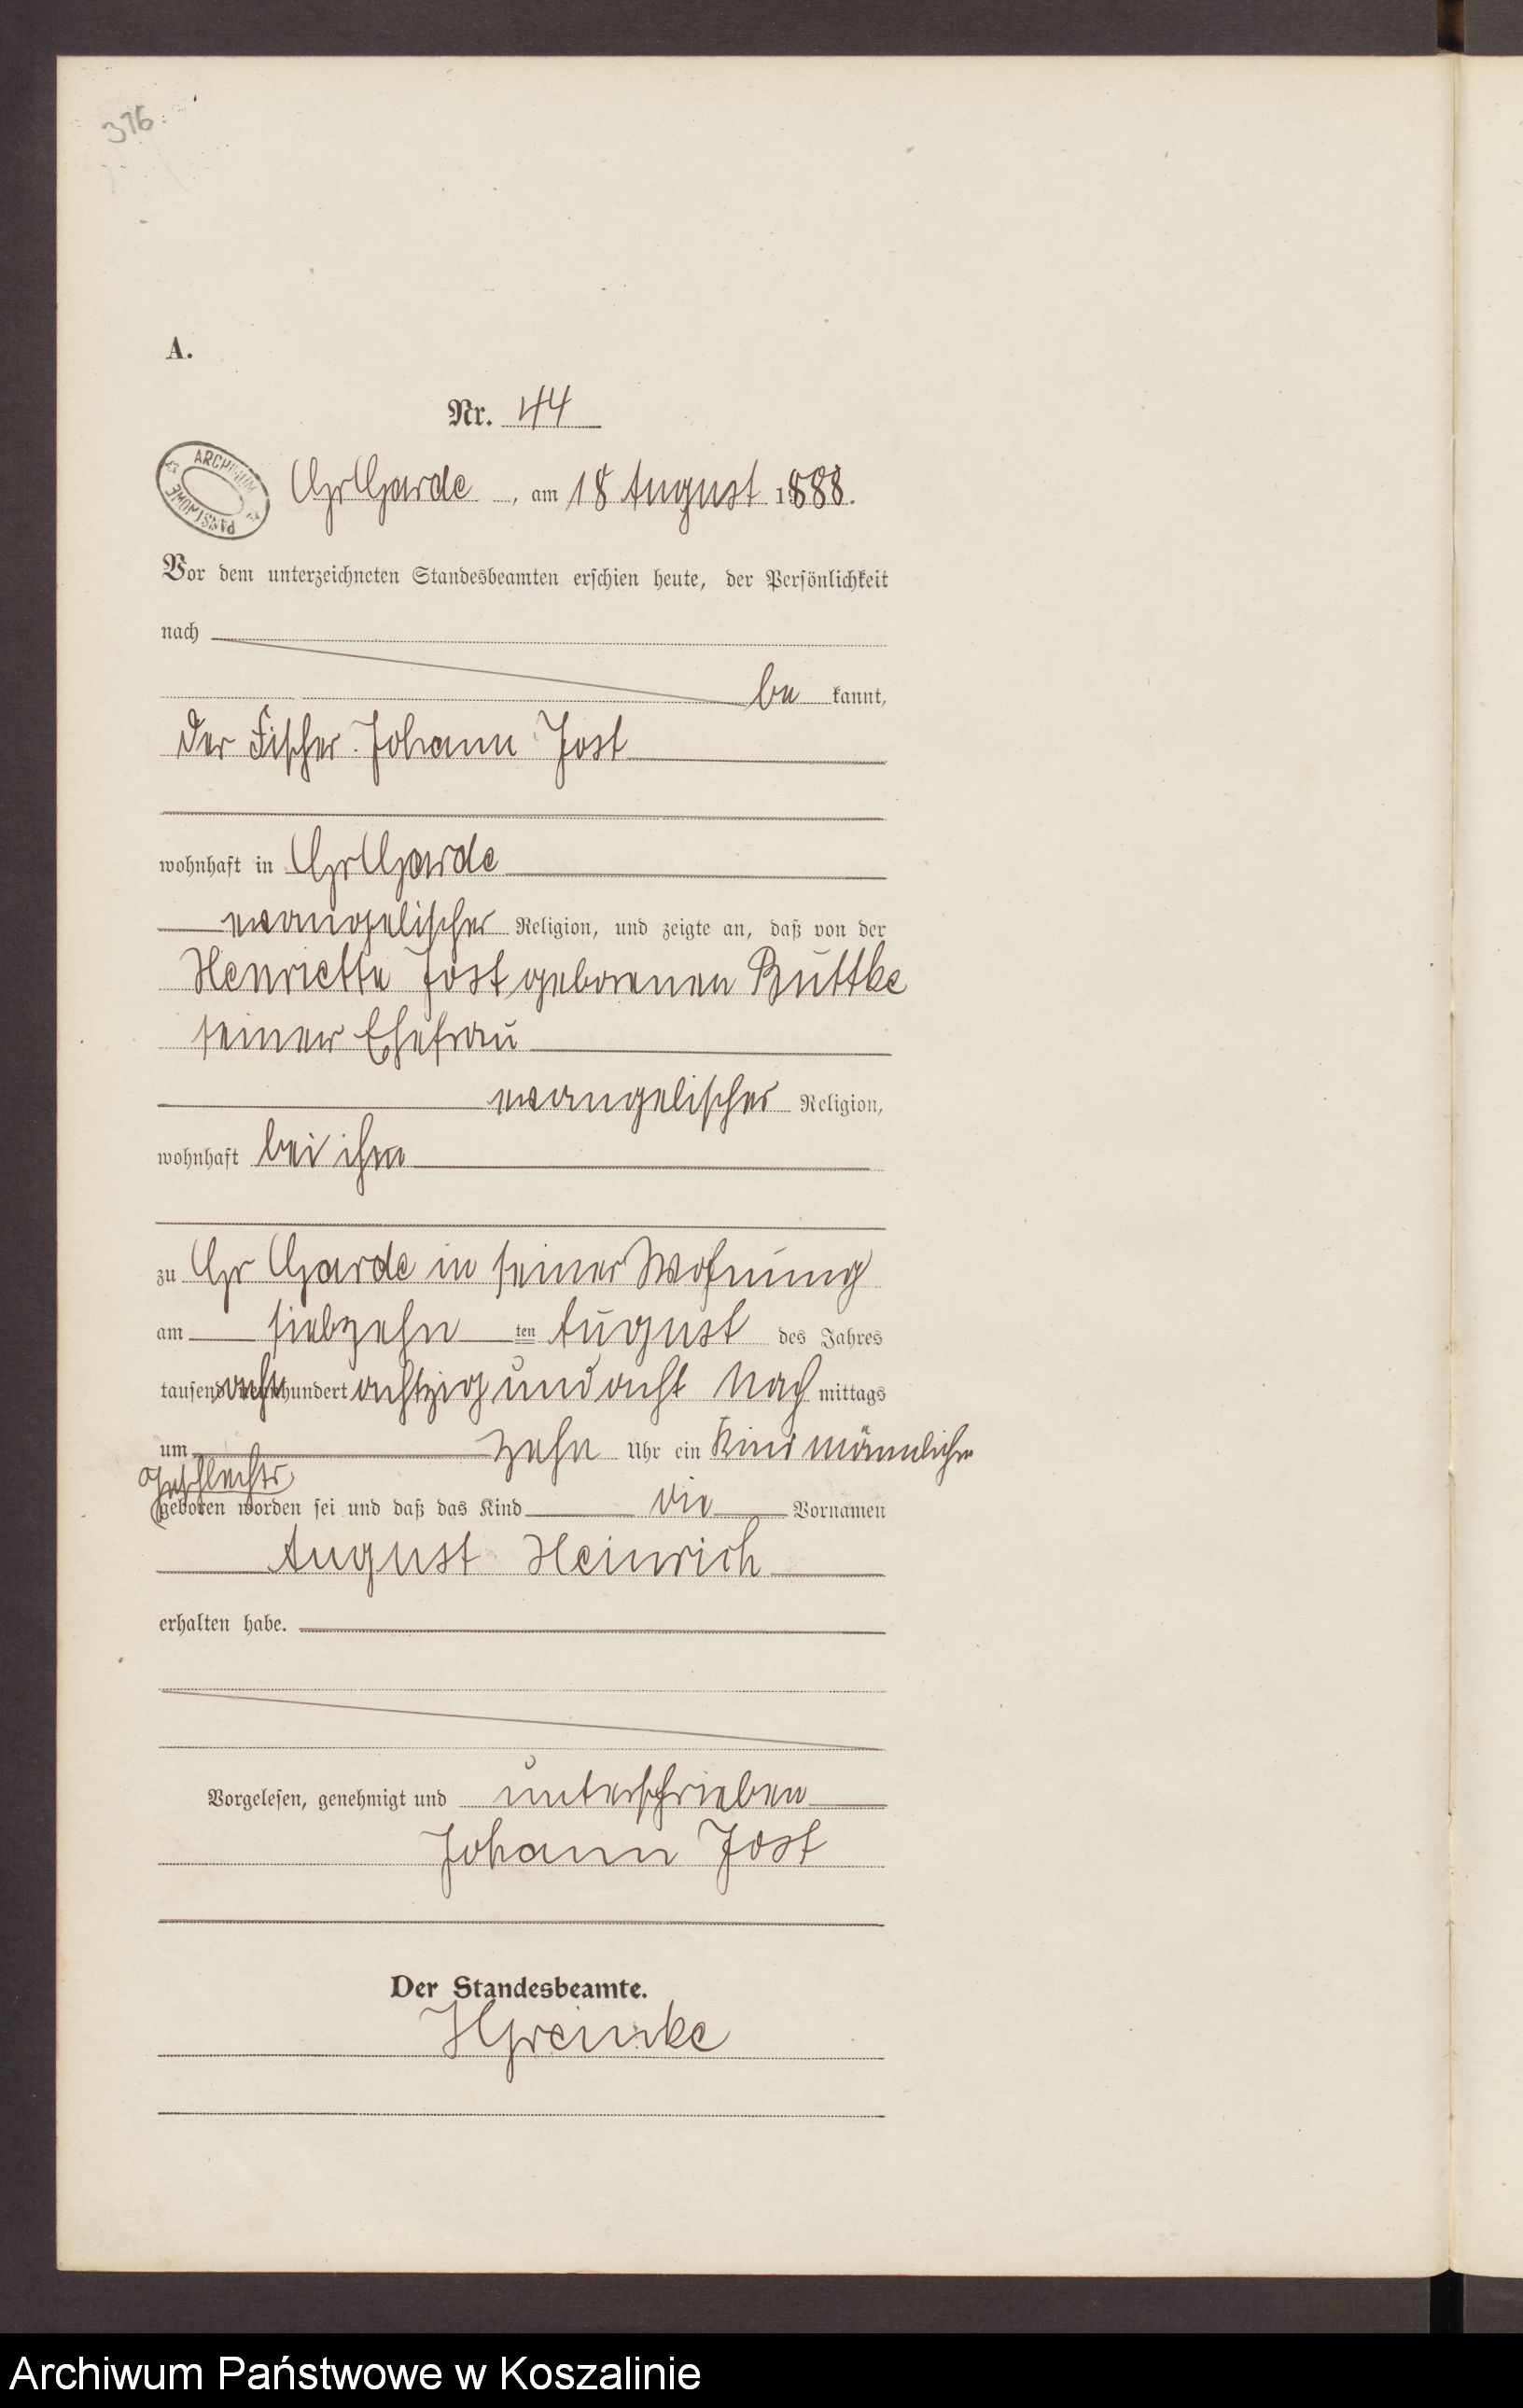 376
A.
Nr. 44
ARCHIWUM PAŃSTWOWE
Gr Garde, am 18 August 1888.
Vor dem unterzeichneten Standesbeamten erschien heute, der Persönlichkeit
nach
be kannt,
der Fischer Johann Jost
wohnhaft in Gr Garde
evangelischer Religion, und zeigte an, daß von der
Henriette Jost geborenen Buttke
seiner Ehefrau
evangelischer Religion,
wohnhaft bei ihm
zu Gr Garde in seiner Wohnung
am siebzehn ten August des Jahres
tausend achthundert achtzig und acht Nach mittags
um zehn Uhr ein Kind männlichen
Geschlechts
geboren worden sei und daß das Kind die Vornamen
August Heinrich
erhalten habe.
Vorgelesen, genehmigt und unterschrieben
Johann Jost
Der Standesbeamte.
HGreinke
Archiwum Państwowe w Koszalinie